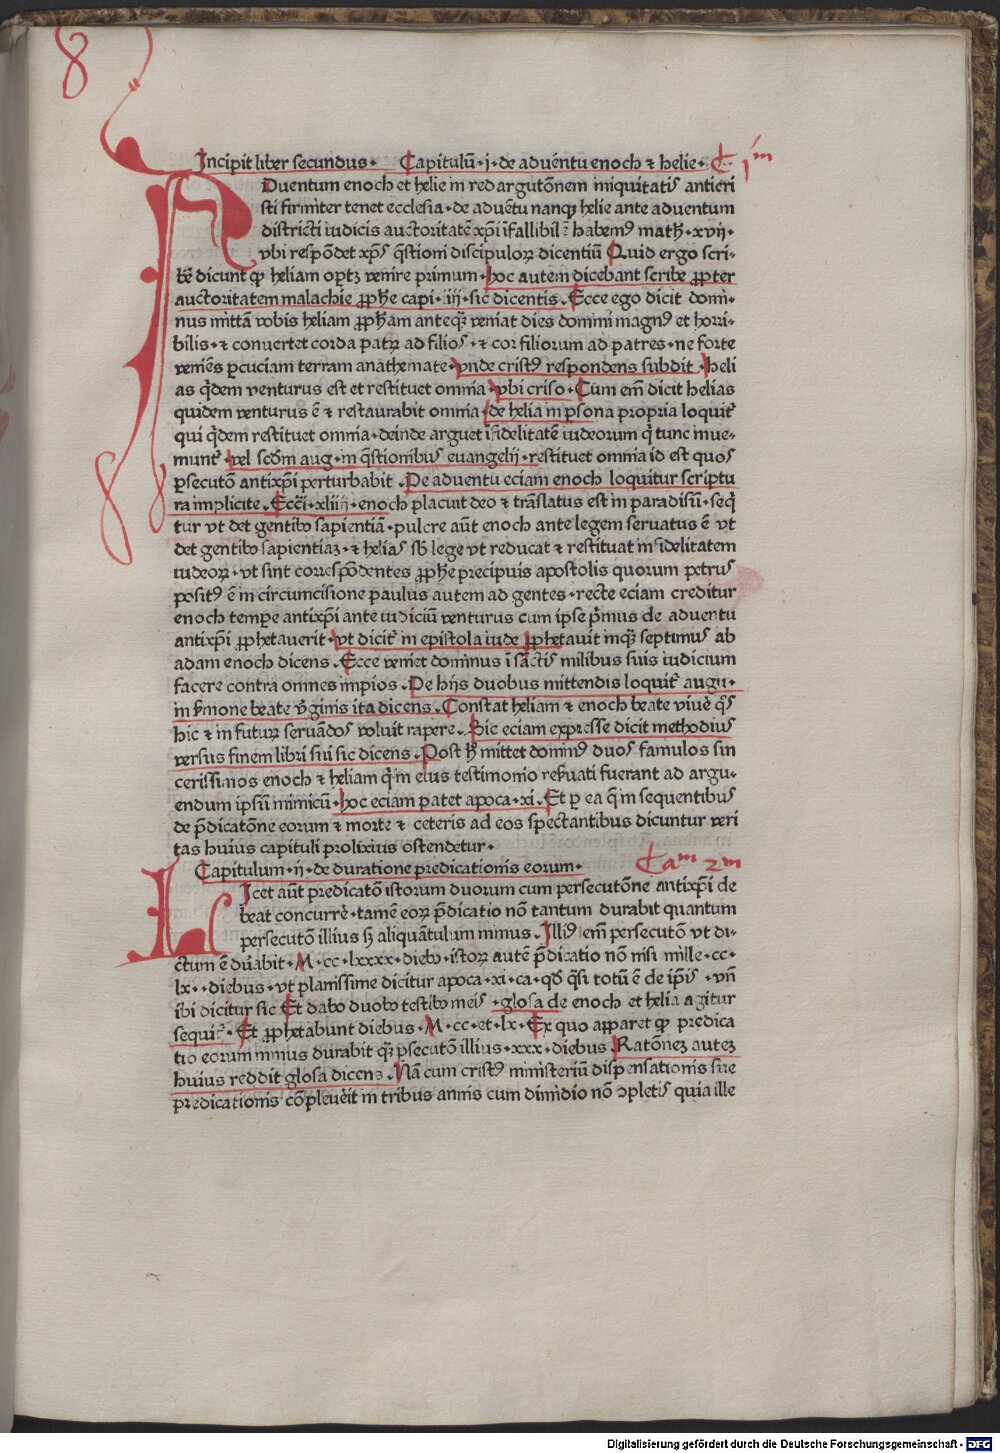 8
Incipit liber secundus · Capitulū · j · de aduentu enoch ⁊ helie · C 1m
ADuentum enoch et helie in redargutōnem iniquitatis anticri
sti firmiter tenet ecclesia · de aduētu nanqꝫ helie ante aduentum
districti iudicis auctoritatē xp̄i īfallibilē habemꝰ math · xvij ·
vbi respōdet xp̄s q̄stioni discipuloꝝ dicentiū Quid ergo scri-
be dicunt qꝫ heliam oportꝫ venire primum · hoc autem dicebant scribe ꝓpter
auctoritatem malachie ꝓphe capi · iiij · sic dicentis · Ecce ego dicit domi-
nus mittā vobis heliam ꝓphām anteqꝫ veniat dies domini magnꝰ et hori-
bilis · ⁊ conuertet corda patꝝ ad filios · ⁊ cor filiorum ad patres · ne forte
veniēs ꝑcuciam terram anathemate · vnde cristꝰ respondens subdit · heli
as q̄dem venturus est et restituet omnia · vbi criso · Cum em̄ dicit helias
quidem venturus ē ⁊ restaurabit omnia · de helia in ꝑsona propria loquit᷑
qui q̄dem restituet omnia · deinde arguet īfidelitatē iudeorum q̄ tunc inue-
niunt᷑ · vel scd̄m aug · in q̄stionibus euangelij · restituet omnia id est quos
ꝑsecutō antixp̄i perturbabit · De aduentu eciam enoch loquitur scriptu
ra implicite · Ecci · xliiij · enoch placuit deo ⁊ trāslatus est in paradisū · seq̄
tur vt det gentibꝰ sapientiā · pulcre aūt enoch ante legem seruatus ē vt
det gentibꝰ sapientiaꝫ · ⁊ helias sb̄ lege vt reducat ⁊ restituat infidelitatem
iudeoꝝ · vt sint correspōdentes ꝓphe precipuis apostolis quorum petrus
positꝰ ē in circumcisione paulus autem ad gentes · recte eciam creditur
enoch tempe antixp̄i ante iudiciū venturus cum ipse p̄mus de aduentu
antixp̄i ꝓphetauerit · vt dicit᷑ in epistola iude ꝓphetauit inqꝫ septimus ab
adam enoch dicens · Ecce veniet dominus ī sāctis milibus suis iudicium
facere contra omnes impios · De hijs duobus mittendis loquit᷑ augu ·
in ẜmone beate v̄ginis ita dicens · Constat heliam ⁊ enoch beate viuē q̄s
hic ⁊ in futuꝝ seruādos voluit rapere · Sic eciam expresse dicit methodius
versus finem libri sui sic dicens · Post h̄ mittet dominꝰ duos famulos sin
cerissimos enoch ⁊ heliam q̄ in eius testimonio reẜuati fuerant ad argu-
endum ipsū inimicū · hoc eciam patet apoca · xi · Et ꝑ ea q̄ in sequentibus
de p̄dicatōne eorum ⁊ morte ⁊ ceteris ad eos spectantibus dicuntur veri
tas huius capituli prolixius ostendetur ·
Capitulum · ij · de duratione predicationis eorum · Cam 2m
LIcet aūt predicatō istorum duorum cum persecutōne antixp̄i de
beat concurrē · tamē eoꝝ p̄dicatio nō tantum durabit quantum
persecutō illius sꝫ aliquātulum minus · Illiꝰ em̄ persecutō vt di-
ctum ē duābit · M · cc · lxxxx · diebꝰ · istoꝝ autē p̄dicatio nō nisi mille · cc ·
lx · · diebus · vt planissime dicitur apoca · xi · ca · qd̄ q̄si totū ē de ip̄is · vn̄
ibi dicitur sic Et dabo duobꝰ testibꝰ meis · glosa de enoch et helia agitur
sequit᷑ · Et ꝓphetabunt diebus · M · cc · et · lx · Ex quo apparet qꝫ predica
tio eorum minus durabit qꝫ ꝑsecutō illius · xxx · diebus · Ratōneꝫ auteꝫ
huius reddit glosa dicens · Nā cum cristꝰ ministeriū dispensationis sue
predicationis cōpleuēit in tribus annis cum dimidio nō ↄpletis quia ille
Digitalisierung gefördert durch die Deutsche Forschungsgemeinschaft - DFG